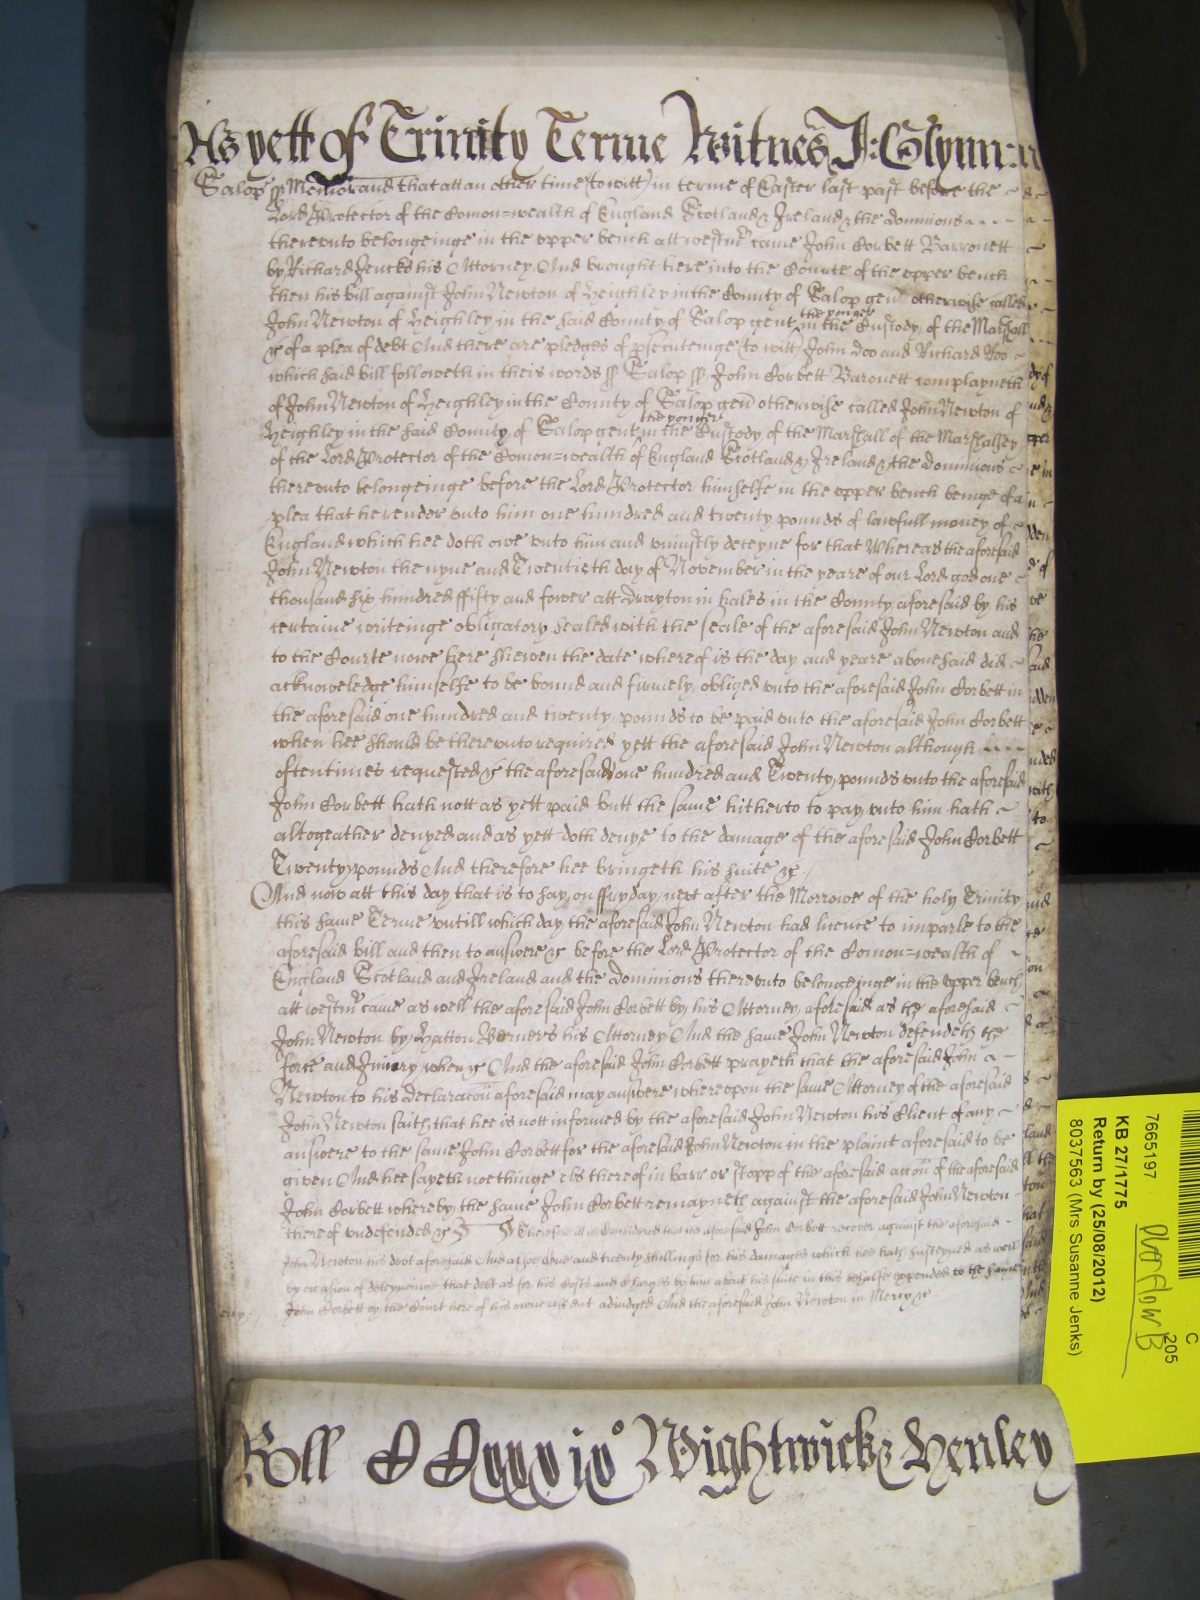 As yett of Trinity Terme Witnes J: Glynn:
Salop ss Memorand that att an other time (to witt) in terme of Easter last past before the
Lord Protector of the Comon=wealth of England Scotland & Ireland & the dominions
therevnto belongeinge in the vpper bench att westmr came John Corbett Barronett
by Richard Jencks his Attorney And brought here into the Courte of the vpper bench
then his bill against John Newton of Heighley in the County of Salop gen otherwise called
John Newton of Heighley in the said County of Salop gent the yonger in the Custody of the Marshall
&c of a plea of debt And there are pledges of psecuteinge (to witt) John Doo and Richard Roo
which said bill followeth in theis words ss Salop ss John Corbett Baronett complayneth
of John Newton of Heighley in the County of Salop gen otherwise called John Newton of
Heighley in the said County of Salop gent the yonger in the Custody of the Marshall of the Marshalsey
of the Lord Protector of the Comon=wealth of England Scotland & Ireland & the dominions
therevnto belongeinge before the Lord Protector himselfe in the vpper bench beinge of a
plea that he render vnto him one hundred and twenty pounds of lawfull money of
England which hee doth owe vnto him and vniustly deteyne for that Whereas the aforesaid
John Newton the nyne and Twentieth day of November in the yeare of our Lord god one
thousand six hundred ffifty and fower att Drayton in hales in the County aforesaid by his
certaine writeinge obligatory sealed with the seale of the aforesaid John Newton and
to the Courte nowe here shewen the date whereof is the day and yeare abovesaid did
acknowledge himselfe to be bound and firmely obliged vnto the aforesaid John Corbett in
the aforesaid one hundred and twenty pounds to be paid vnto the aforesaid John Corbett
when hee should be therevnto required yett the aforesaid John Newton although
oftentimes requested &c the aforesaid one hundred and Twenty pounds vnto the aforesaid
John Corbett hath nott as yett paid butt the same hitherto to pay vnto him hath
altogeather denyed and as yett doth denye to the damage of the aforesaid John Corbett
Twenty pounds And therefore hee bringeth his suite &c
And now att this day that is to say on ffryday next after the Morrowe of the holy Trinity
this same Terme vntill which day the aforesaid John Newton had licence to imparle to the
aforesaid bill and then to answere &c before the Lord Protector of the Comon=wealth of
England Scotland and Ireland and the dominions therevnto belongeinge in the vpper bench
att westmr came as well the aforesaid John Corbett by his Attorney aforesaid as the aforesaid
John Newton by Hatton Berners his Attorney And the same John Newton defendeth the
force and Iniury when &c And the aforesaid John Corbett prayeth that the aforesaid John
Newton to his declaracon aforesaid may answere wherevpon the same Attorney of the aforesaid
John Newton saith that hee is nott informed by the aforesaid John Newton his Client of any
answere to the same John Corbett for the aforesaid John Newton in the plaint aforesaid to be
given And hee sayeth noethinge els thereof in barr or stopp of the aforesaid accon of the aforesaid
John Corbett whereby the same John Corbett remayneth against the aforesaid John Newton
thereof vndefended &c Therefore itt is Considered that the aforesaid John Corbett recover against the aforesaid
John Newton his debt aforesaid And alsoe One and twenty shillings for his damages which hee hath susteyned as well
by occasion of deteyneinge that debt as for his Costs and Charges by him about his suite in this behalfe expended to the same
John Corbett by the Court here of his owne assent adiudged And the aforesaid John Newton in Mercy &c
Roll CCxxxiiijo Wightwick & Henley
7665197
KB 27/1775
Return by (25/08/2012)
8037563 (Mrs Susanne Jenks)
C
205